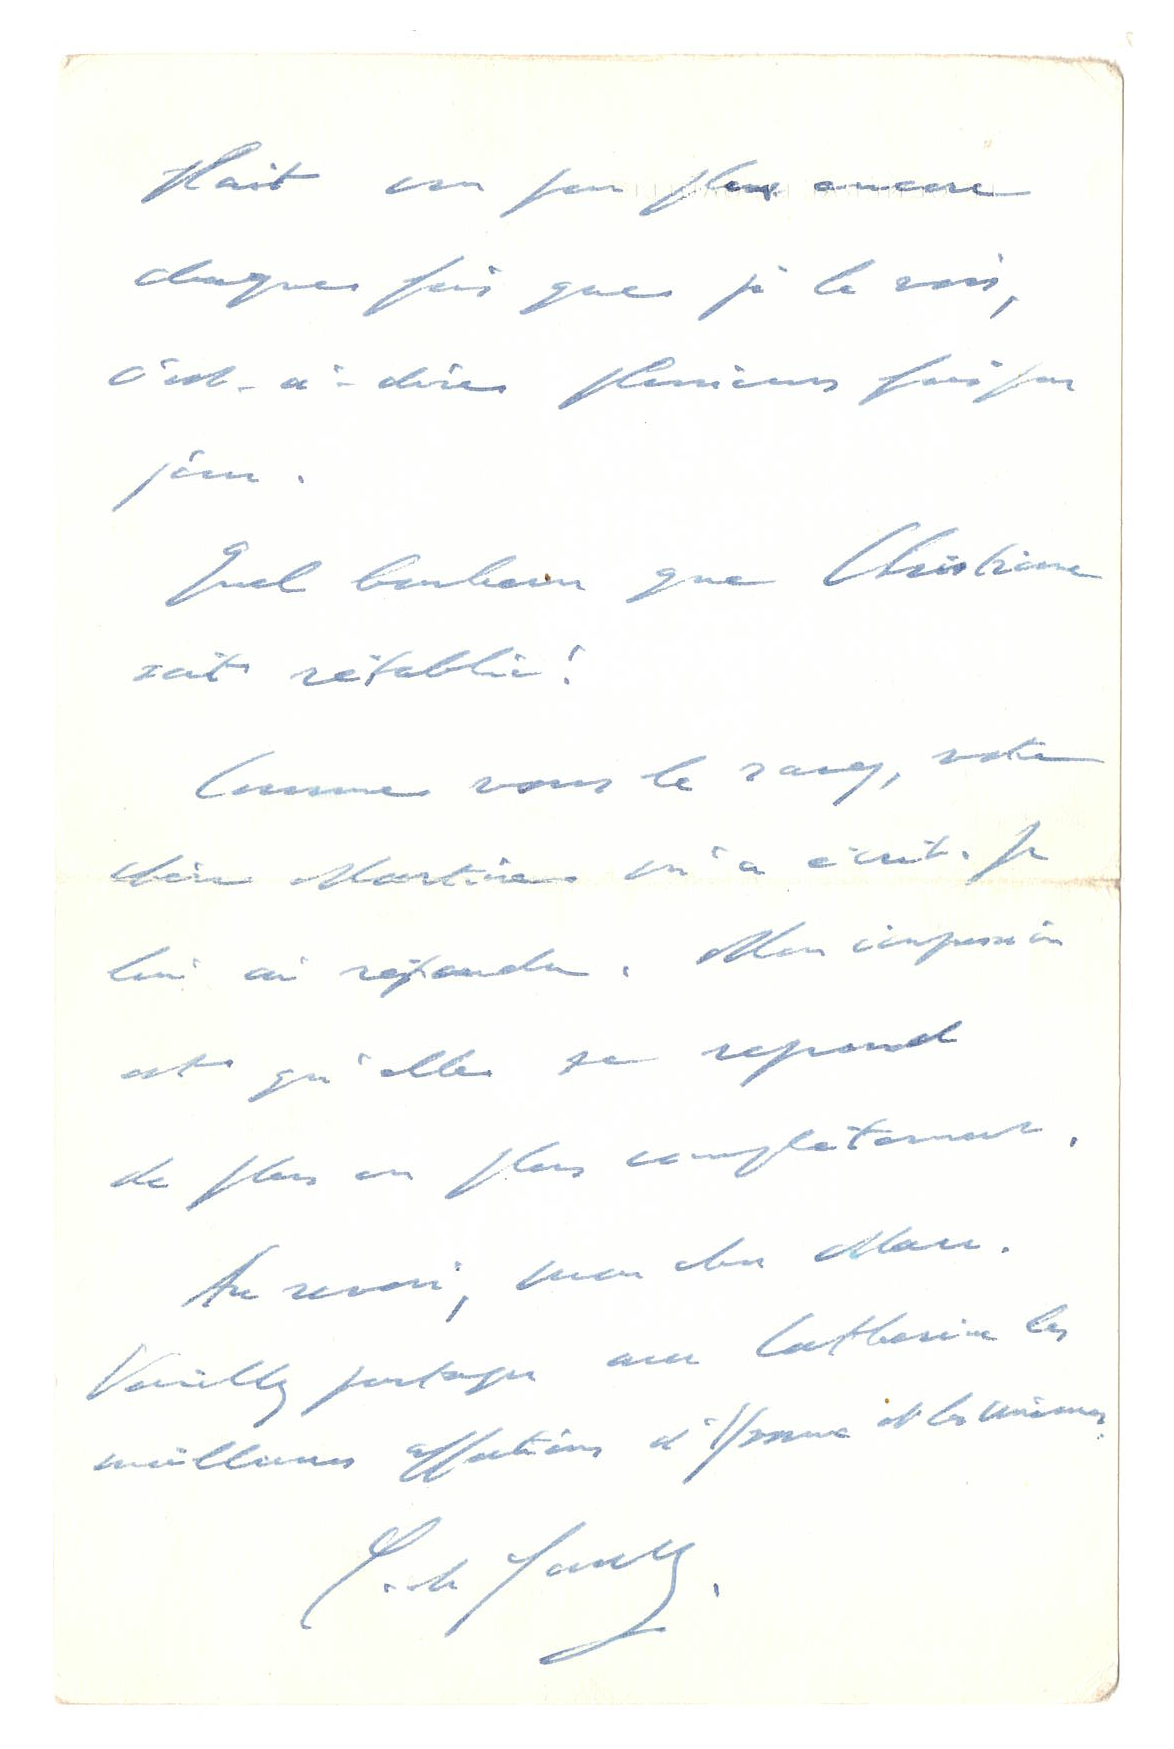 plait un peu plus encore
chaque fois que je le vois,
c'est-à-dire plusieurs fois par
jour.
Quel bonheur que Christiane
soit rétablie!
Comme vous le savez, votre
chère Martine m'a écrit. Je
lui ai répondu. Mon impression
est qu'elle se reprend
de plus en plus complètement.
Au revoir, mon cher Marc.
Veuillez partager avec Catherine les
meilleures affections d'Yvonne et les miennes.
C. de Gaulle.